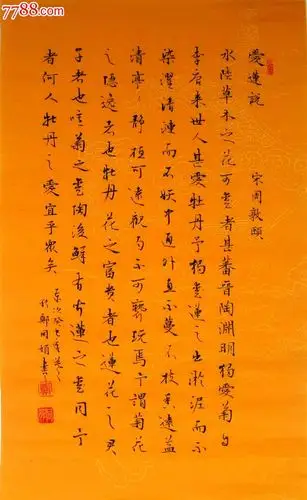 7788.com
愛蓮説
宋周敦頤
水陸草木之花可愛者甚蕃晉陶淵明獨愛菊自
李唐來世人甚愛牡丹予獨愛蓮之出淤泥而不
染濯清漣而不妖中通外直不蔓不枝香遠益
清亭亭静植可遠觀而不可褻玩焉予謂菊花
之隱逸者也牡丹花之富貴者也蓮花之君
子者也噫菊之愛陶後鮮有聞蓮之愛同予
者何人牡丹之愛宜乎衆矣